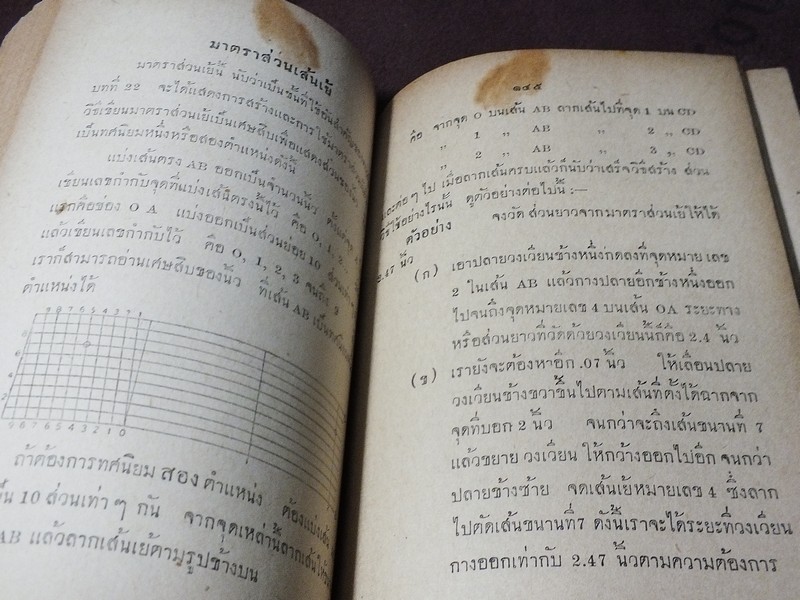 มาตราส่วนเส้นเย้
มาตราส่วนเย้นี้ นับว่าเป็นชั้นที่ใช้
บทที่ 22 จะได้แสดงการสร้างและการใช้มาตรา
วิธีเขียนมาตราส่วนเย้เป็นเศษสิบเพื่อแสดงส่วน
เป็นทศนิยมหนึ่งหรือสองตำแหน่งดังนี้
แบ่งเส้นตรง AB ออกเป็นจำนวนนิ้ว
เขียนเลขกำกับจุดที่แบ่งเส้นตรงนี้ไว้ คือ 0, 1, 2,
แรกคือช่อง O A แบ่งออกเป็นส่วนย่อย 10
แล้วเขียนเลขกำกับไว้ คือ 0, 1, 2, 3 จนถึง 9
เราก็สามารถอ่านเศษสิบของนิ้ว ที่เส้น AB เป็นทศนิยม
ตำแหน่งได้
9 8 7 6 5 4 3 2 1
9 8 7 6 5 4 3 2 1 0
ถ้าต้องการทศนิยม สอง ตำแหน่ง ต้องแบ่งเส้น
10 ส่วนเท่า ๆ กัน จากจุดเหล่านี้ลากเส้นให้
AB แล้วลากเส้นเย้ตามรูปข้างบน
๑๔๕
คือ จากจุด O บนเส้น AB ลากเส้นไปที่จุด 1 บน CD
„ 1 „ AB „ 2 „ CD
„ 2 „ AB „ 3 „ CD
และต่อ ๆ ไป เมื่อลากเส้นครบแล้วก็นับว่าเสร็จวิธีสร้าง ส่วน
วิธีใช้อย่างไรนั้น ดูตัวอย่างต่อไปนี้ :—
ตัวอย่าง จงวัด ส่วนยาวจากมาตราส่วนเย้ให้ได้
2.47 นิ้ว
(ก) เอาปลายวงเวียนข้างหนึ่งกดลงที่จุดหมาย เลข
2 ในเส้น AB แล้วกางปลายอีกข้างหนึ่งออก
ไปจนถึงจุดหมายเลข 4 บนเส้น OA ระยะทาง
หรือส่วนยาวที่วัดด้วยวงเวียนนี้ก็คือ 2.4 นิ้ว
(ข) เรายังจะต้องหาอีก .07 นิ้ว ให้เลื่อนปลาย
วงเวียนข้างขวาขึ้นไปตามเส้นที่ตั้งได้ฉากจาก
จุดที่บอก 2 นิ้ว จนกว่าจะถึงเส้นขนานที่ 7
แล้วขยาย วงเวียน ให้กว้างออกไปอีก จนกว่า
ปลายข้างซ้าย จดเส้นเย้หมายเลข 4 ซึ่งลาก
ไปตัดเส้นขนานที่7 ดังนี้เราจะได้ระยะที่วงเวียน
กางออกเท่ากับ 2.47 นิ้วตามความต้องการ